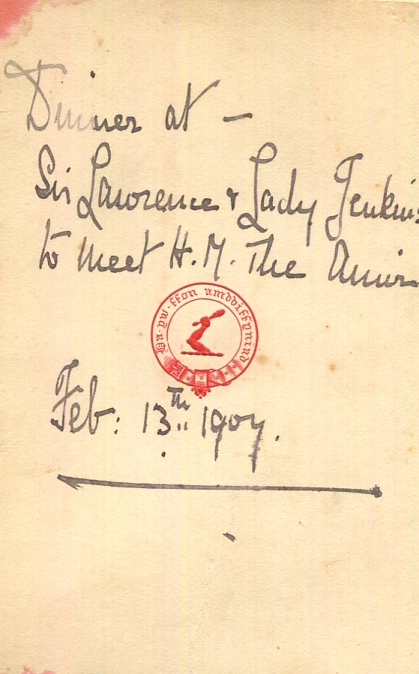 Dinner at —
Sir Lawrence & Lady Jenkins
to meet H.M. The Amir
Da · yw · ffon amddiffyniad
Feb: 13th 1907.